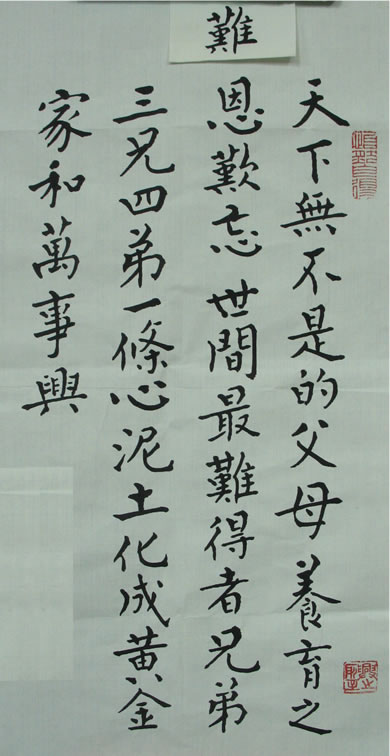 難
天下無不是的父母養育之
恩歎忘世間最難得者兄弟
三兄四弟一條心泥土化成黃金
家和萬事興